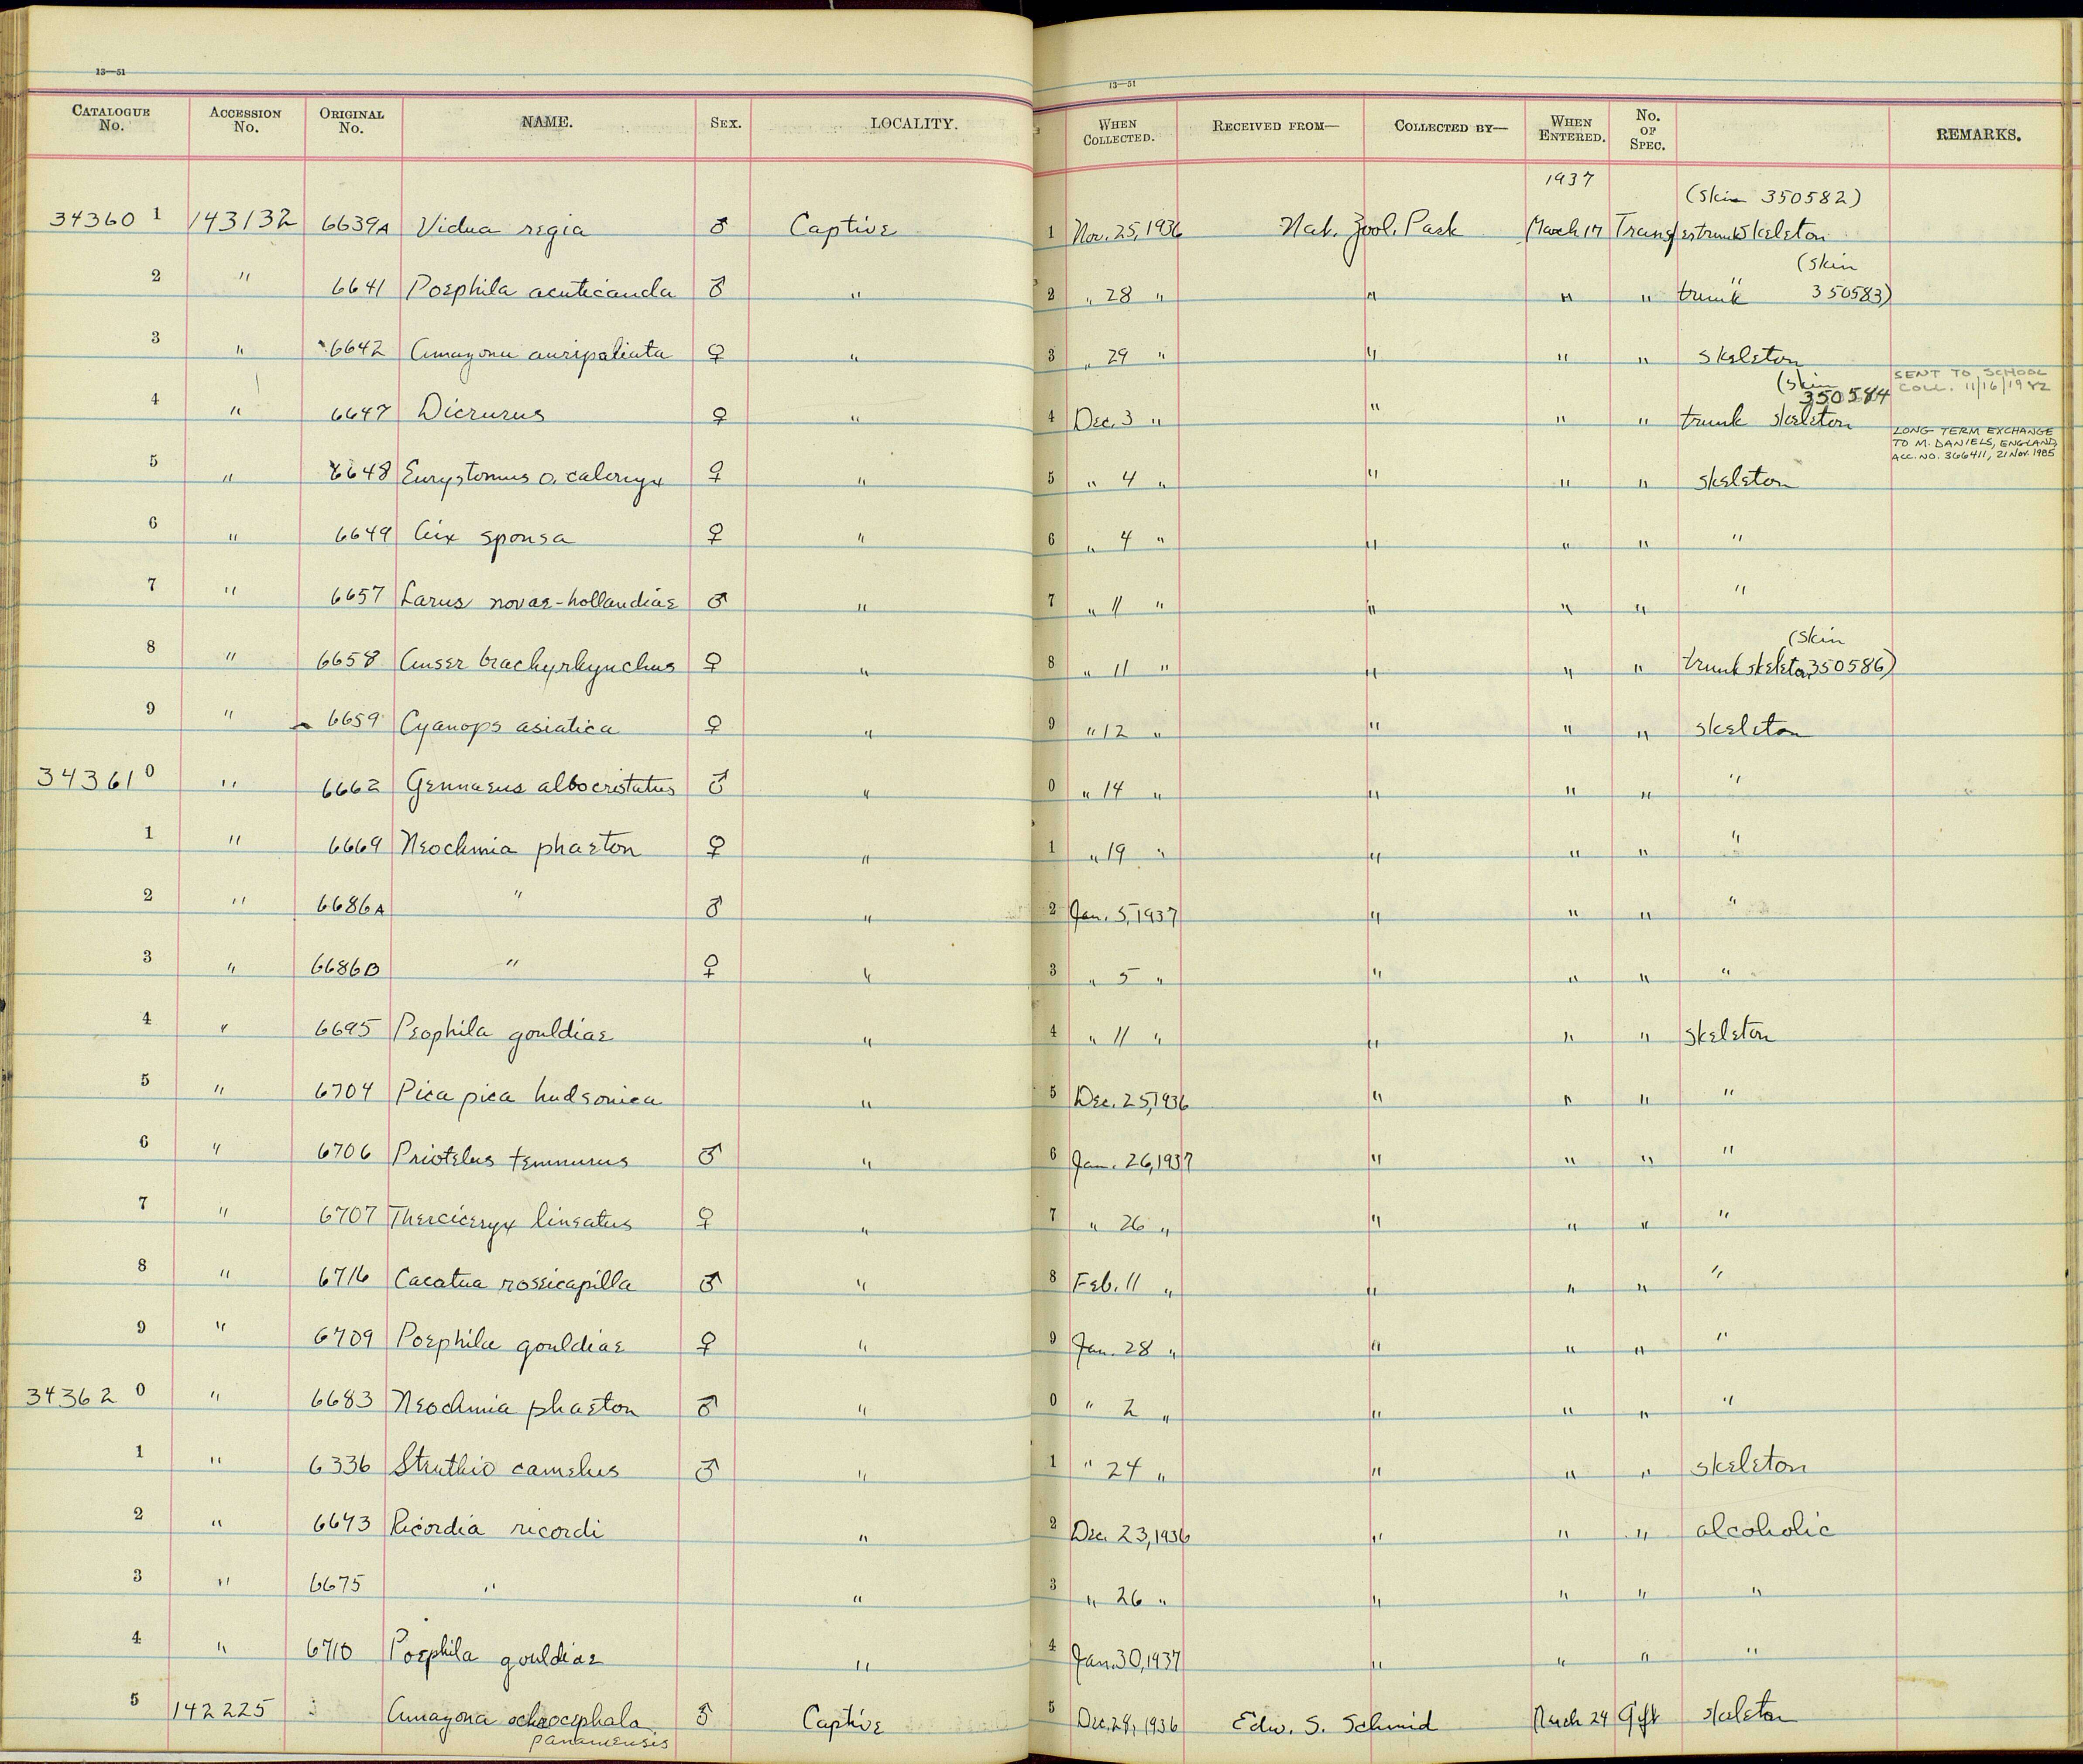 13—51
13—51
CATALOGUE No. ACCESSION No. ORIGINAL No. NAME. SEX. LOCALITY. WHEN COLLECTED. RECEIVED FROM— COLLECTED BY— WHEN ENTERED. No. OF SPEC. REMARKS.
1937 (skin 350582)
34360 1 143132 6639A Vidua regia ♂ Captive 1 Nov. 25, 1936 Nat. Zool. Park March 17 Transfer trunk skeleton
(skin
2 " 6641 Poephila acuticauda ♂ " 2 " 28 " " " " trunk " 350583)
3 " 6642 Amazona auripaliata ♀ " 3 " 29 " " " " skeleton
(skin SENT TO SCHOOL
350584 COLL. 11/16/1982
4 " 6647 Dicrurus ♀ " 4 Dec. 3 " " " " trunk skeleton
LONG TERM EXCHANGE
TO M. DANIELS, ENGLAND,
ACC. NO. 366411, 21 Nov. 1985
5 " 6648 Eurystomus o. calonyx ♀ " 5 " 4 " " " " skeleton
6 " 6649 Aix sponsa ♀ " 6 " 4 " " " " "
7 " 6657 Larus novae-hollandiae ♂ " 7 " 11 " " " " "
(skin
8 " 6658 Anser brachyrhynchus ♀ " 8 " 11 " " " " trunk skeleton 350586)
9 " 6659 Cyanops asiatica ♀ " 9 " 12 " " " " skeleton
34361 0 " 6662 Gennaeus albocristatus ♂ " 0 " 14 " " " " "
1 " 6669 Neochmia phaeton ♀ " 1 " 19 " " " " "
2 " 6686A " ♂ " 2 Jan. 5, 1937 " " " "
3 " 6686B " ♀ " 3 " 5 " " " " "
4 " 6695 Peophila gouldiae " 4 " 11 " " " " skeleton
5 " 6704 Pica pica hudsonica " 5 Dec. 25, 1936 " " " "
6 " 6706 Priotelus temnurus ♂ " 6 Jan. 26, 1937 " " " "
7 " 6707 Thereiceryx lineatus ♀ " 7 " 26 " " " " "
8 " 6716 Cacatua roseicapilla ♂ " 8 Feb. 11 " " " " "
9 " 6709 Poephila gouldiae ♀ " 9 Jan. 28 " " " " "
34362 0 " 6683 Neochmia phaeton ♂ " 0 " 2 " " " " "
1 " 6336 Struthio camelus ♂ " 1 " 24 " " " " skeleton
2 " 6673 Ricordia ricordi " 2 Dec. 23, 1936 " " " alcoholic
3 " 6675 " " 3 " 26 " " " " "
4 " 6710 Poephila gouldiae " 4 Jan. 30, 1937 " " " "
5 142225 Amazona ochrocephala ♂ Captive 5 Dec. 24, 1936 Edw. S. Schmid March 24 Gift skeleton
panamensis